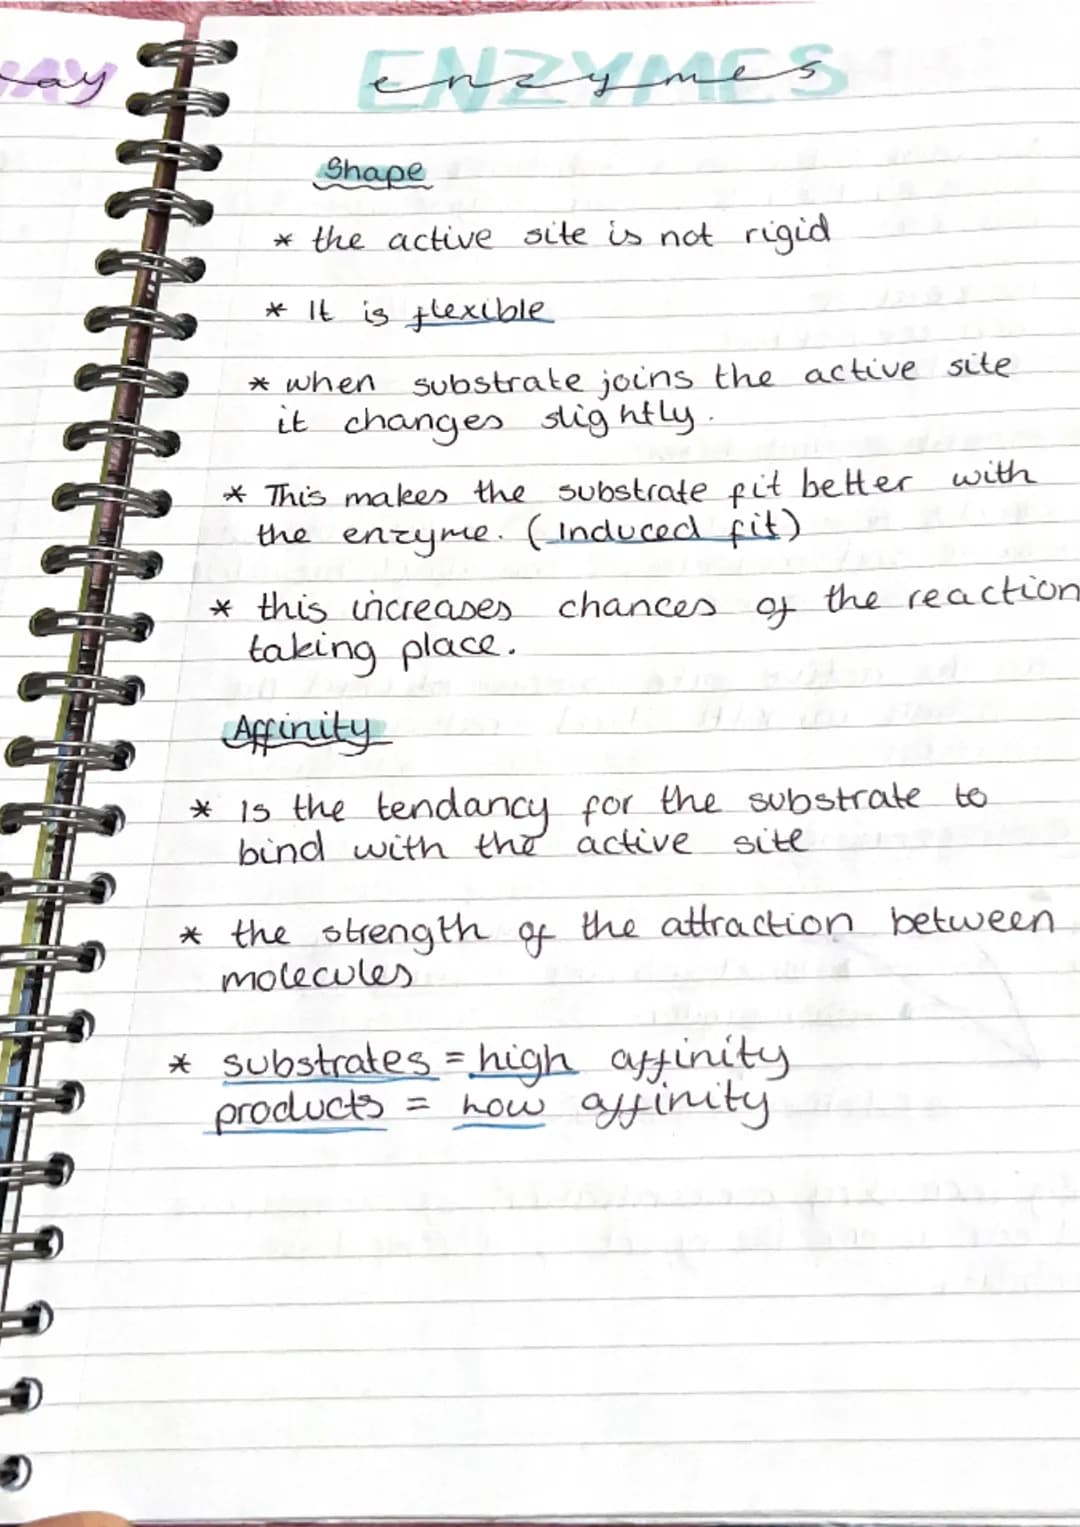 ay
AY
ENZYMES
enzymes
Shape
* the active site is not rigid
* It is flexible
* when substrate joins the active site
it changes slightly.
* This makes the substrate fit better with
the enzyme. (Induced fit)
* this increases chances of the reaction
taking place.
Affinity
* is the tendancy for the substrate to
bind with the active site
* the strength of the attraction between
molecules
* substrates = high affinity
products = how affinity